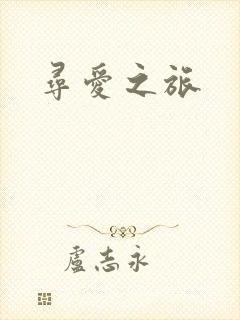 尋愛之旅
盧志永